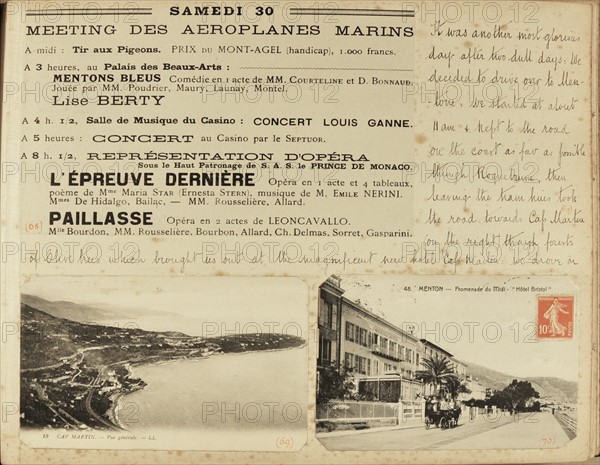 SAMEDI 30
MEETING DES AEROPLANES MARINS
A midi : Tir aux Pigeons. PRIX DU MONT-AGEL (handicap), 1.000 francs.
A 3 heures, au Palais des Beaux-Arts :
MENTONS BLEUS Comédie en 1 acte de MM. COURTELINE et D. BONNAUD.
Jouée par MM. Poudrier, Maury, Launay, Montel.
Lise BERTY
A 4 h. 1/2, Salle de Musique du Casino : CONCERT LOUIS GANNE.
A 5 heures : CONCERT au Casino par le SEPTUOR.
A 8 h. 1/2, REPRÉSENTATION D'OPÉRA
Sous le Haut Patronage de S. A. S. le PRINCE DE MONACO.
L'ÉPREUVE DERNIÈRE Opéra en 1 acte et 4 tableaux,
poème de Mme Maria STAR (Ernesta STERN), musique de M. EMILE NERINI.
Mmes De Hidalgo, Bailac, — MM. Rousselière, Allard.
PAILLASSE Opéra en 2 actes de LEONCAVALLO.
Mlle Bourdon, MM. Rousselière, Bourbon, Allard, Ch. Delmas, Sorret, Gasparini.
It was another most glorious
day after two dull days: We
decided to drive over to Men-
tone. We started at about
& kept to the road
on the coast as far as possible
through Roquebrune, then
leaving the tram lines took
the road towards Cap Martin
on the right through forests
of olive trees which brought us out at the magnificent Cap Martin. We drove
18 CAP MARTIN. — Vue générale. — LL.
(69)
48. MENTON — Promenade du Midi - "Hôtel Bristol"
10
(70)